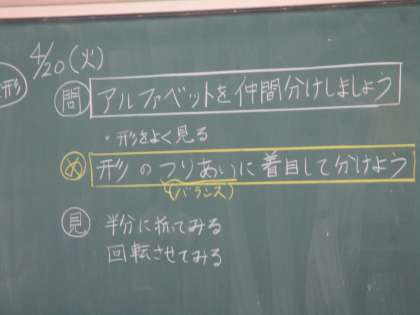 4/20(火)
形
問 アルファベットを仲間分けしましょう
・形をよく見る
め 形のつりあいに着目して分けよう
(バランス)
見 半分に折ってみる
回転させてみる